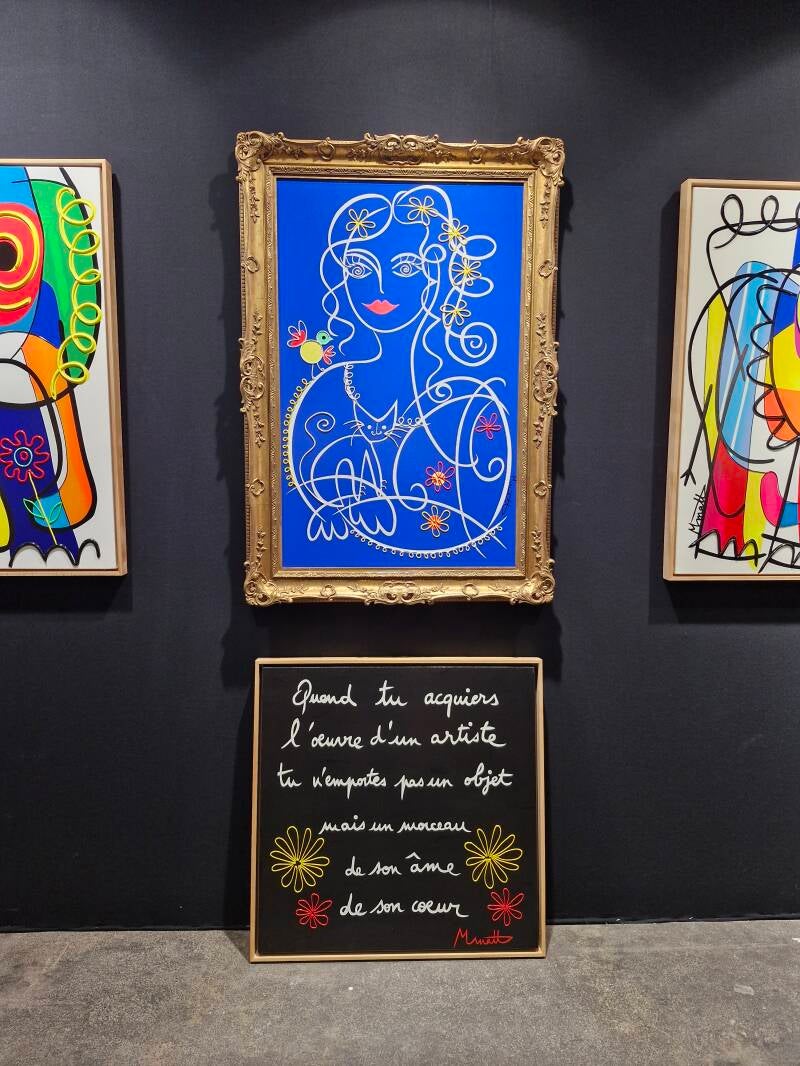 Quand tu acquiers
l'œuvre d'un artiste
tu n'emportes pas un objet
mais un morceau
de son âme
de son cœur